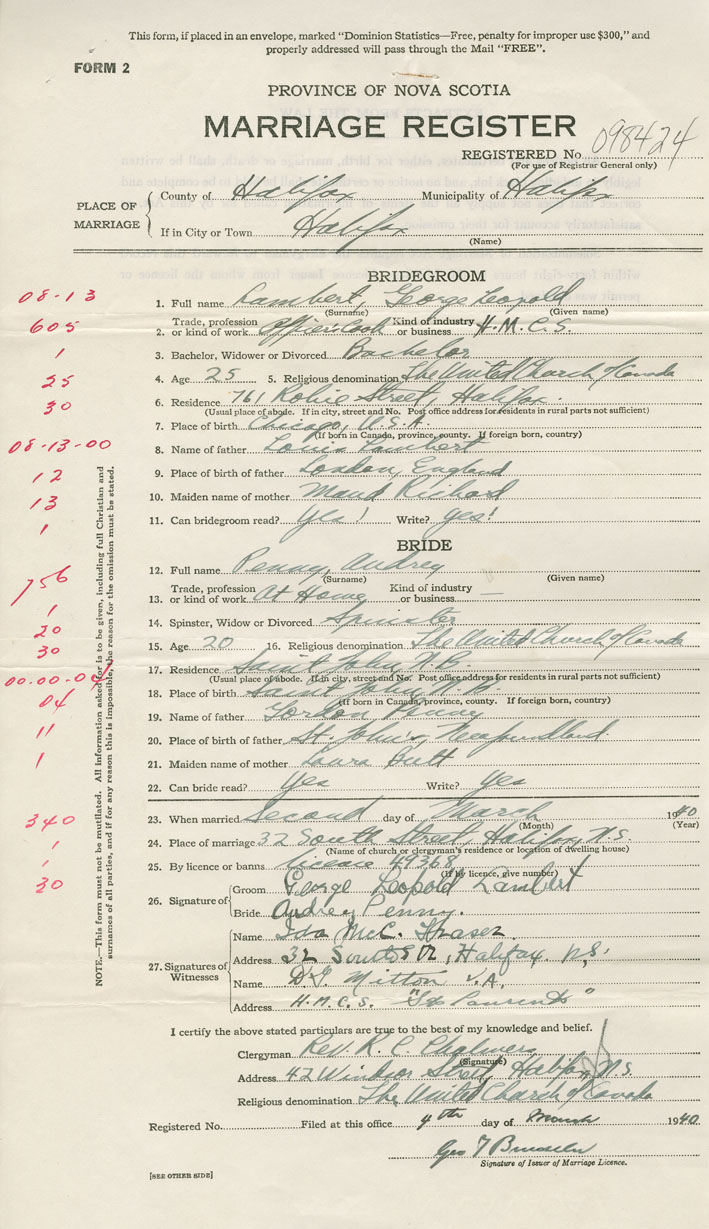 This form, if placed in an envelope, marked “Dominion Statistics—Free, penalty for improper use $300,” and
properly addressed will pass through the Mail “FREE”.
FORM 2
PROVINCE OF NOVA SCOTIA
MARRIAGE REGISTER
REGISTERED No. 098424
(For use of Registrar General only)
PLACE OF MARRIAGE
County of Halifax Municipality of Halifax
If in City or Town Halifax
(Name)
BRIDEGROOM
08-13
1. Full name Lambert, George Leopold
(Surname) (Given name)
605
2. Trade, profession or kind of work Officer's Cook Kind of industry or business H.M.C.S.
1
3. Bachelor, Widower or Divorced Bachelor
25
4. Age 25 5. Religious denomination The United Church of Canada
30
6. Residence 761 Robie Street, Halifax.
(Usual place of abode. If in city, street and No. Post office address for residents in rural parts not sufficient)
7. Place of birth Chicago, U.S.A.
(If born in Canada, province, county. If foreign born, country)
08-13-00
8. Name of father Louis Lambert
12
9. Place of birth of father London, England
13
10. Maiden name of mother Maud Richard
1
11. Can bridegroom read? Yes! Write? Yes!
BRIDE
12. Full name Penny, Audrey
(Surname) (Given name)
756
13. Trade, profession or kind of work At Home Kind of industry or business —
1
14. Spinster, Widow or Divorced Spinster
20
15. Age 20 16. Religious denomination The United Church of Canada
30
17. Residence Saint John, N.B.
(Usual place of abode. If in city, street and No. Post office address for residents in rural parts not sufficient)
00-00-04
18. Place of birth Saint John, N.B.
(If born in Canada, province, county. If foreign born, country)
04
19. Name of father Gordon Penny
11
20. Place of birth of father St. John's, Newfoundland.
1
21. Maiden name of mother Laura Butt
22. Can bride read? Yes Write? Yes
340
23. When married Second day of March 1940
(Month) (Year)
1
24. Place of marriage 32 South Street, Halifax, N.S.
(Name of church or clergyman's residence or location of dwelling house)
1
25. By licence or banns licence 49368
(If by licence, give number)
30
26. Signature of
Groom George Leopold Lambert
Bride Audrey Penny.
27. Signatures of Witnesses
Name Ida McC. Fraser
Address 32 South St, Halifax. N.S.
Name D.G. Mitton V.A.
Address H.M.C.S. "St Laurent"
I certify the above stated particulars are true to the best of my knowledge and belief.
Clergyman Rev. R. C. Chalmers
(Signature)
Address 42 Windsor Street, Halifax, N.S.
Religious denomination The United Church of Canada
Registered No. Filed at this office 4th day of March 1940
Geo T
Signature of Issuer of Marriage Licence.
[SEE OTHER SIDE]
NOTE.—This form must not be mutilated. All information asked for is to be given, including full Christian and
surnames of all parties, and if for any reason this is impossible, the reason for the omission must be stated.